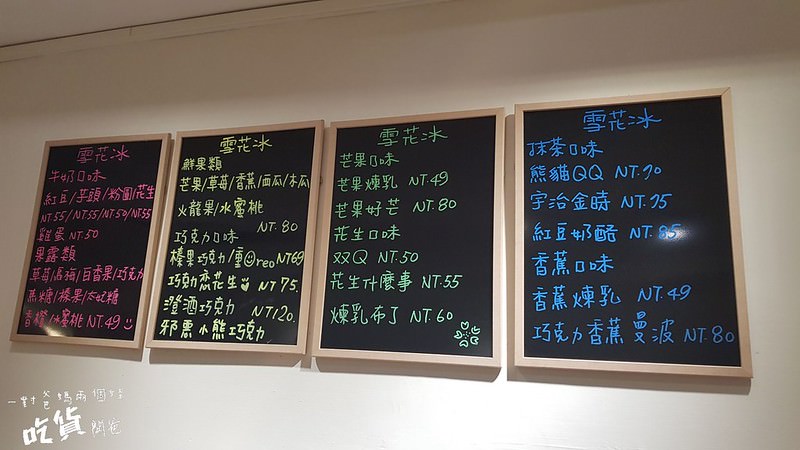 雪花冰
牛奶口味
紅豆/芋頭/粉圓/花生
NT.55/NT55/NT.50/NT55
雞蛋 NT.50
果露類
草莓/百香果/巧克力
焦糖/榛果/太妃糖
香橙/水蜜桃 NT.49
雪花冰
鮮果類
芒果/草莓/香蕉/西瓜/木瓜
火龍果/水蜜桃
NT. 80
巧克力口味
榛果巧克力/重Oreo NT69
巧克力恋花生 NT 75.
澄酒巧克力 NT120.
邪惡小熊巧克力
雪花冰
芒果口味
芒果煉乳 NT.49
芒果好芒 NT.80
花生口味
双Q NT.50
花生什麼事 NT.55
煉乳布丁 NT.60
雪花冰
抹茶口味
熊貓QQ NT.70
宇治金時 NT.75
紅豆奶酪 NT.85
香蕉口味
香蕉煉乳 NT.49
巧克力香蕉曼波 NT.80
一對爸媽兩個好
吃貨 闖蕩